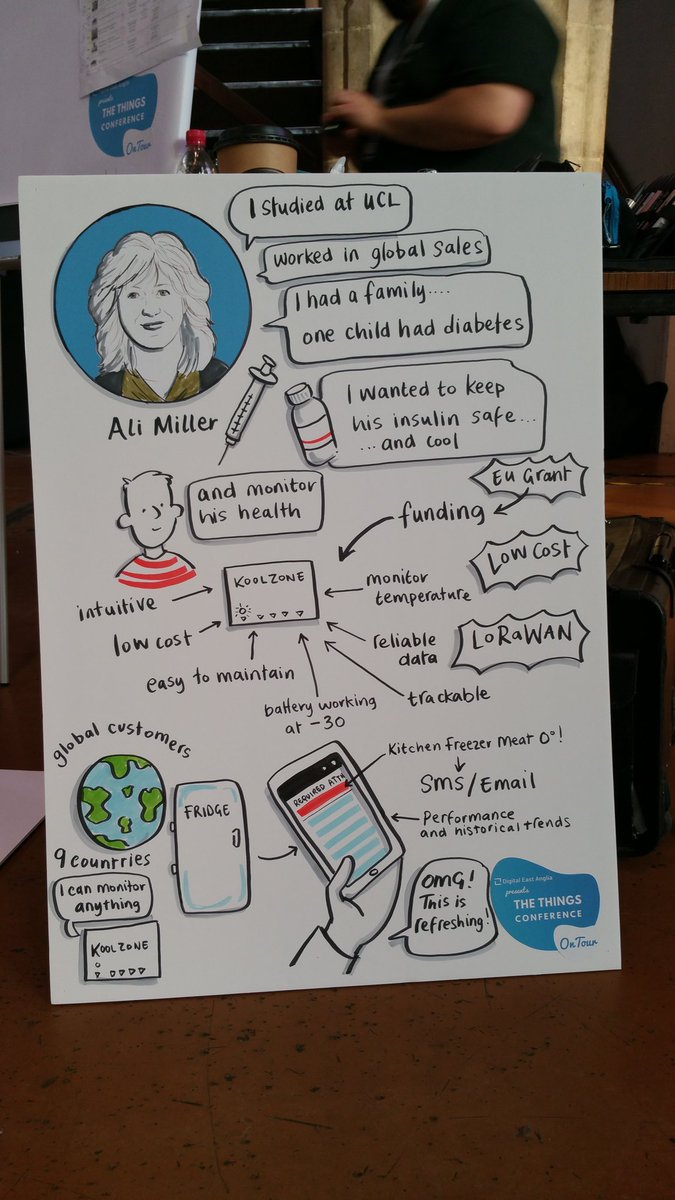 presents
THE THINGS
CONFERENCE
OnTour
I studied at UCL
worked in global sales
I had a family....
one child had diabetes
Ali Miller
I wanted to keep
his insulin safe...
...and cool
and monitor
his health
EU Grant
funding
Low Cost
LoRaWAN
KOOLZONE
intuitive
low cost
easy to maintain
battery working
at -30
trackable
reliable
data
monitor
temperature
global customers
9 countries
I can monitor
anything
KOOLZONE
FRIDGE
REQUIRED ATTN
Kitchen freezer meat 0°!
SMS/Email
Performance
and historical trends
OMG!
This is
refreshing!
Digital East Anglia
presents
THE THINGS
CONFERENCE
OnTour